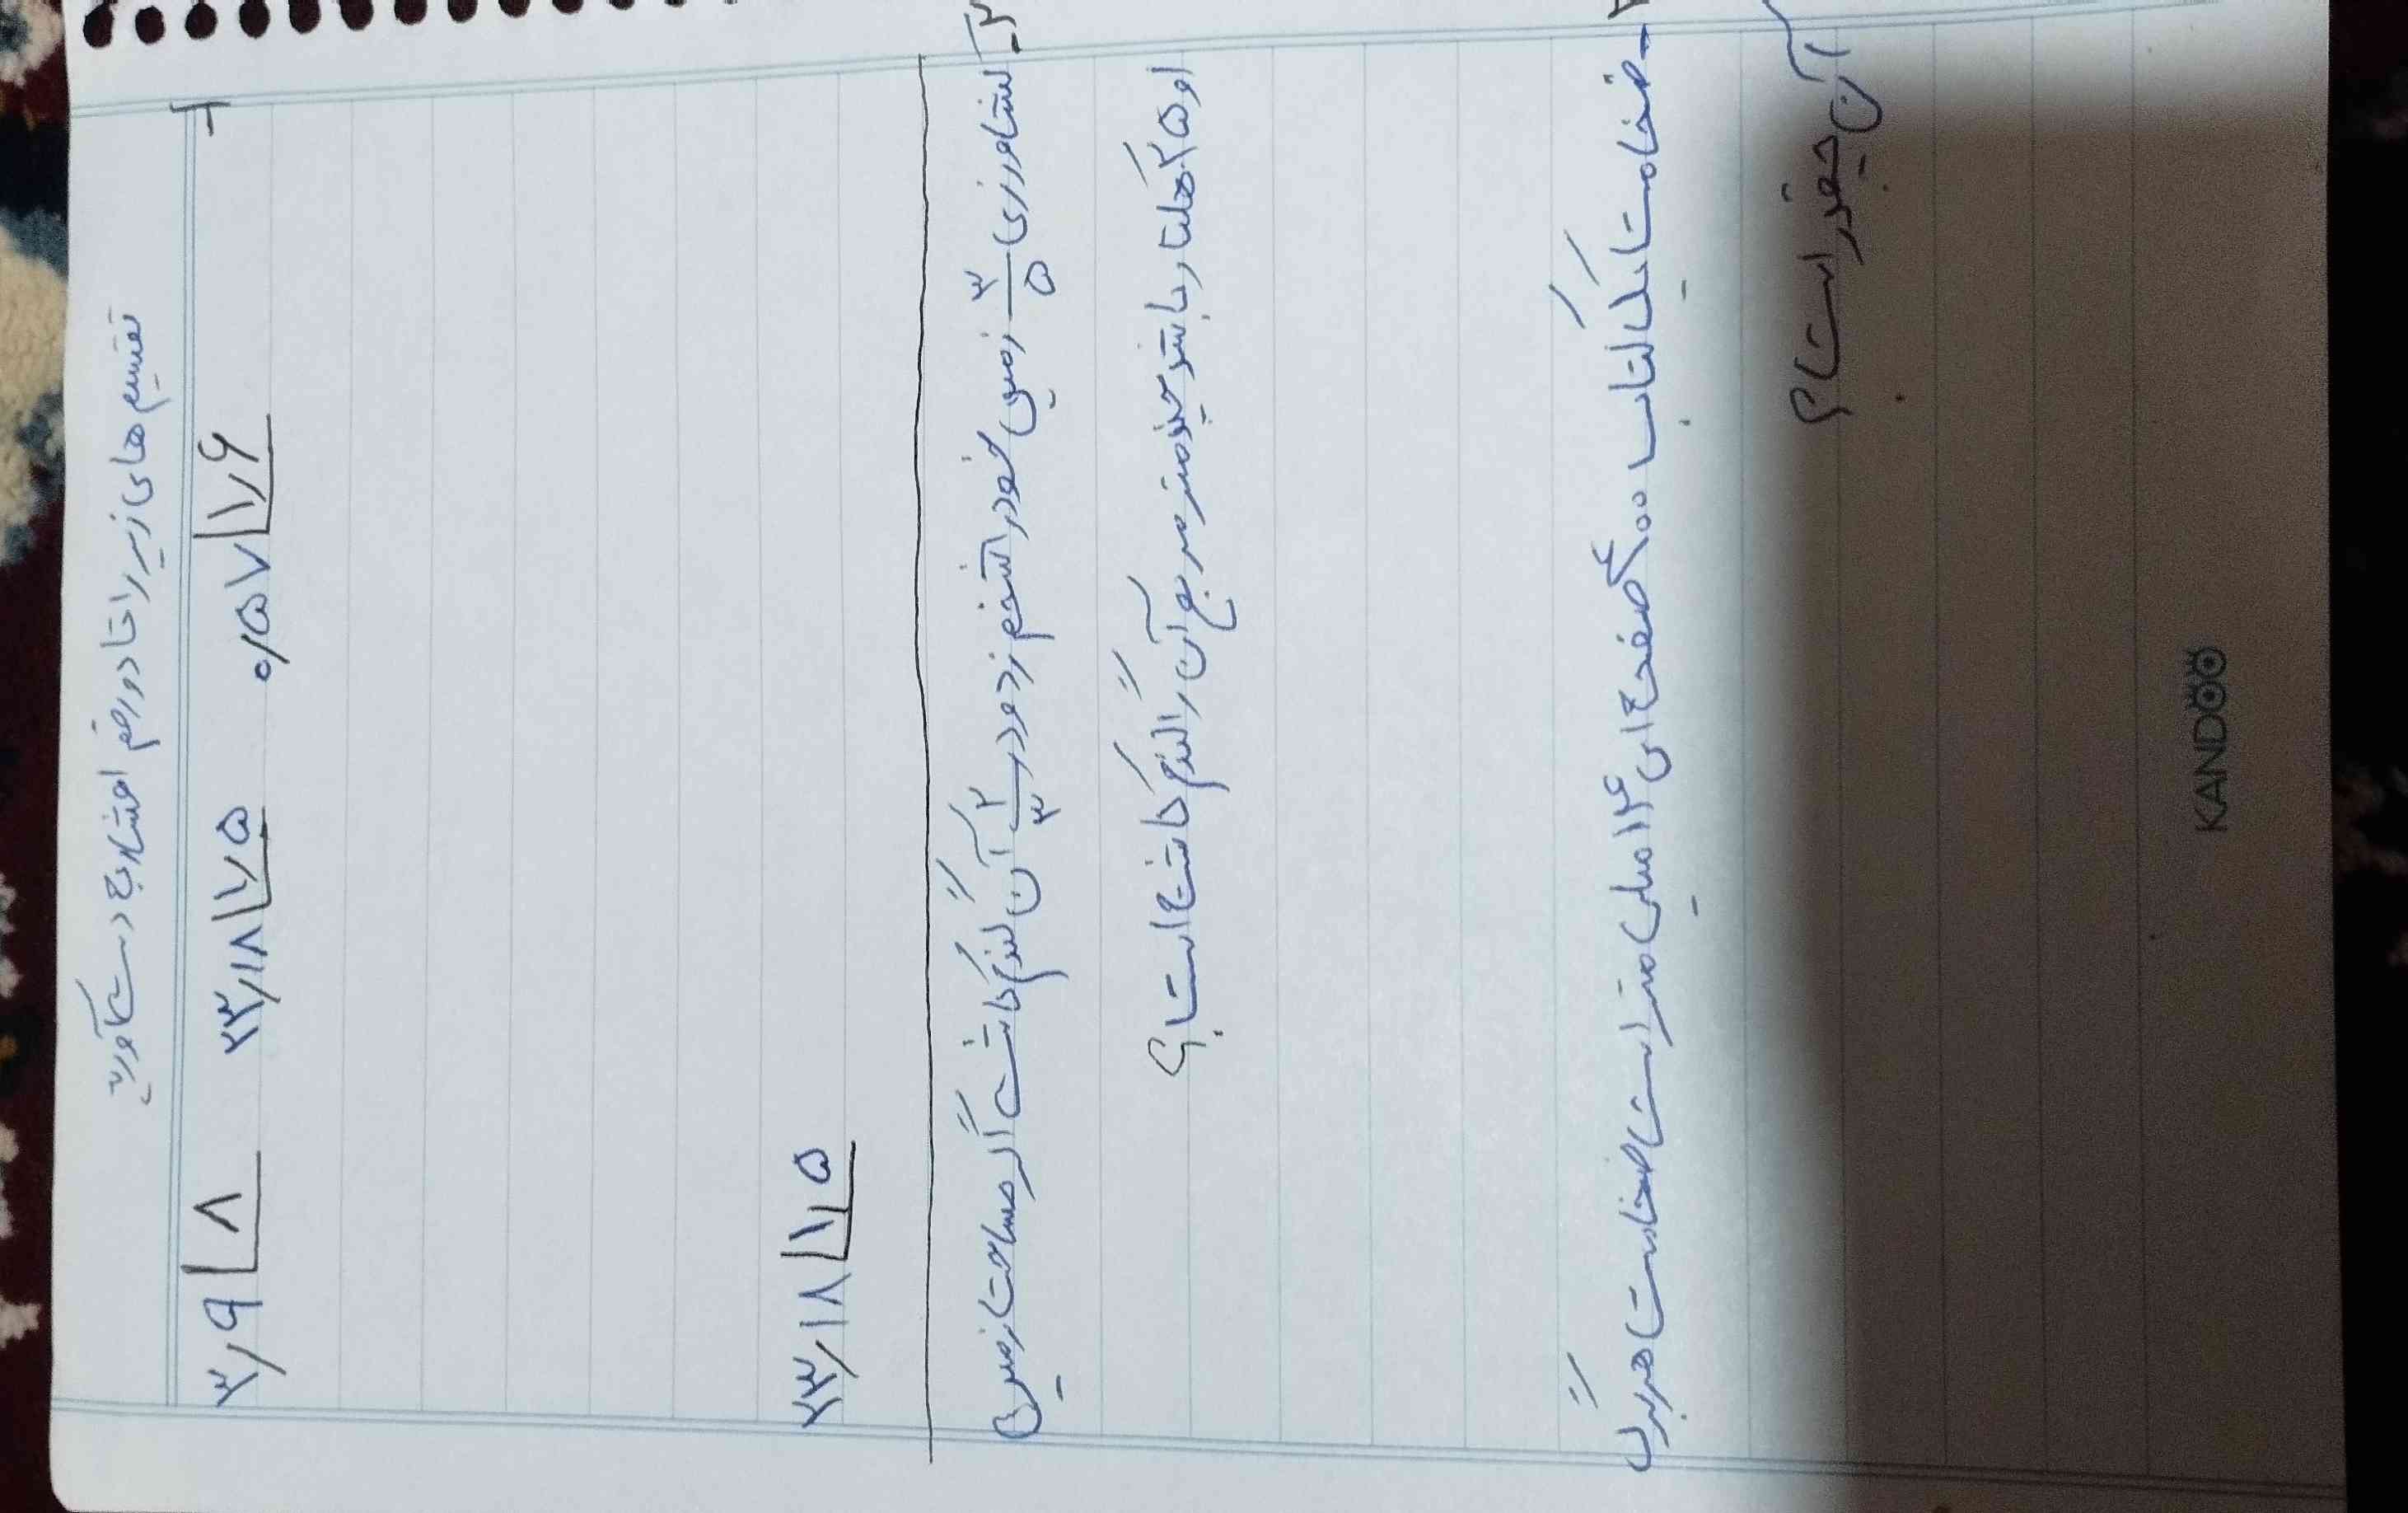 تقسیم های زیر را تا دو رقم اعشار به دست آورید
۱- ۰٫۵۷ | ۱٫۶   ۲۳٫۱۸ | ۲٫۵   ۳٫۹ | ۸
۲۳٫۱۸ | ۱٫۵
۲- کشاورزی ۳/۵ زمین خود را شخم زد و در ۲/۳ آن گندم کاشت اگر مساحت زمین
او ۲۵ هکتار باشد چند متر مربع آن را گندم کاشته است؟
- ضخامت یک کتاب ۴۰۰ صفحه ای ۱۲۴ میلی متر است ضخامت هر برگ
آن چقدر است؟
KANDOO